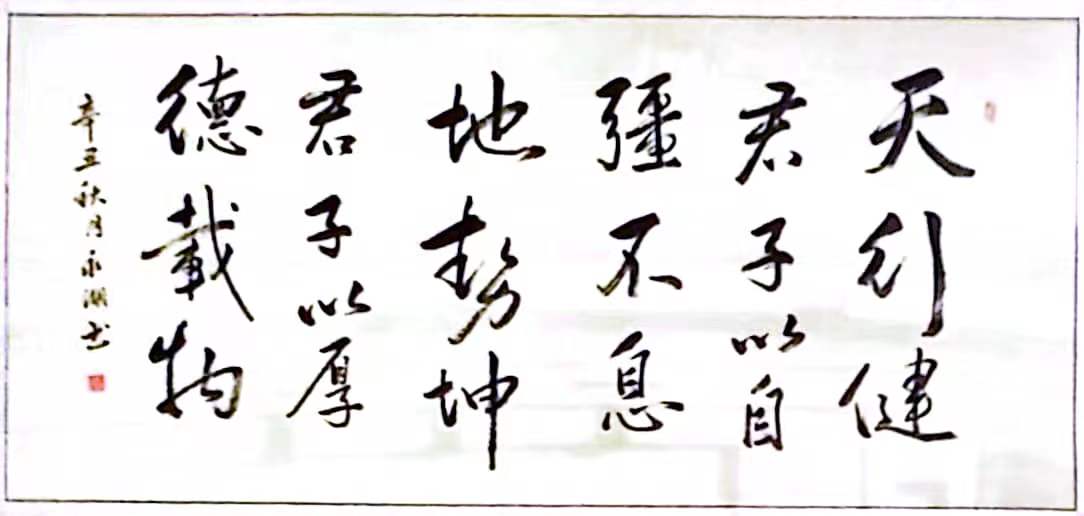 天行健
君子以自
彊不息
地势坤
君子以厚
德载物
辛丑秋月永湖书